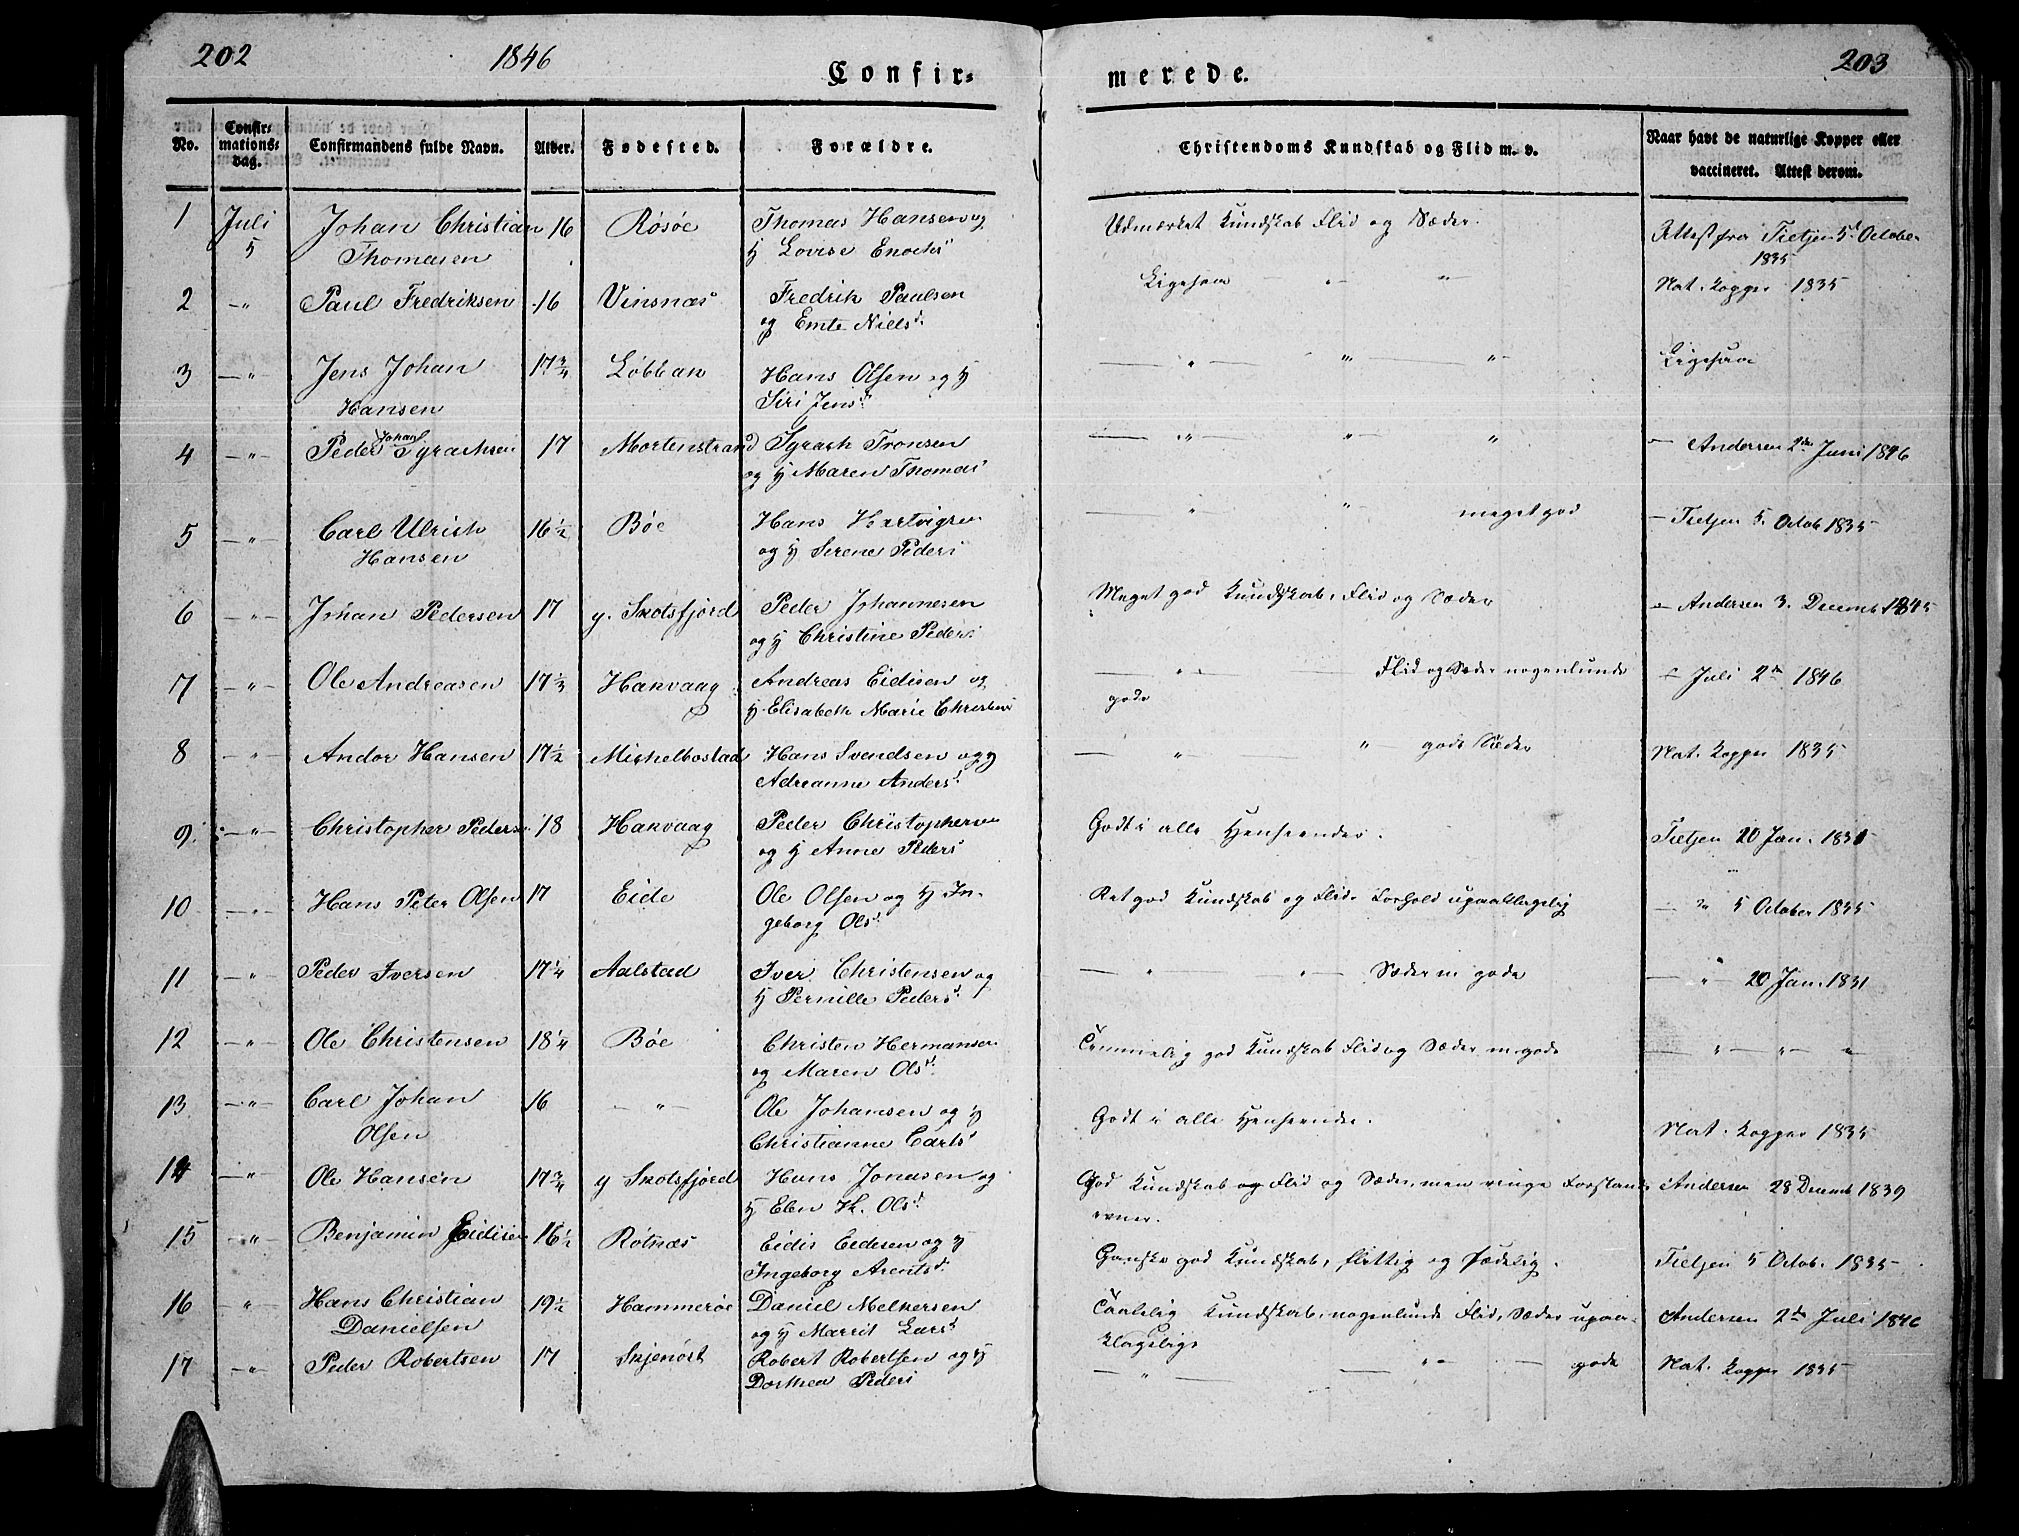 202 1846 Confir-
merede. 203
No. Confir-mations-dag. Confirmandens fulde Navn. Alder. Fødested. Forældre. Christendoms Kundskab og Flid m. v. Naar havt de naturlige Kopper eller vaccineret. Attest derom.
1 Juli 5 Johan Christian 16 Røsøe Thomas Hansen og Udmærket Kundskab Flid og Sæder. Attest fra Tietjen 5t October
Thomasen H Lovise Enochs 1835
2 -"- Paul Fredriksen 16 Vinsnæs Fredrik Paulsen Ligesaa " " Nat. Kopper 1835
og Emte Nielsd.
3 -"- Jens Johan 17 3/4 Løbbak Hans Olsen og H " " " Ligesaa
Hansen Siri Jensd.
4 -"- Peder Johan Syrachsen 17 Mortenstrand Syrach Tronsen " " " - Andersen 2den Juni 1846
og H Maren Thomas
5 -"- Carl Ulrich 16 1/2 Bøe Hans Hartvigsen " " meget god - Tietjen 5. Octob 1835
Hansen og H Serene Peders
6 -"- Johan Pedersen 17 y. Skotsfjord Peder Johannesen Meget god Kundskab, Flid og Sæder - Andersen 3. Decemb 1845
og H Christine Peders
7 -"- Ole Andreasen 17 1/3 Hakvaag Andreas Eidisen og " Flid og Sæder nogenlunde - Juli 2den 1846
H Elisabeth Marie Christens gode
8 -"- Andor Hansen 17 1/2 Michelbostad Hans Svendsen og H " " gode Sæder Nat. Kopper 1835
Adreanne Anders
9 -"- Christopher Peders 18 Hakvaag Peder Christophersen Godt i alle Henseender. Tietjen 20 Jan. 1831
og H Anne Peders
10 -"- Hans Peter Olsen 17 Eide Ole Olsen og H In- Ret god Kundskab og Flid. Forhold upaaklagelig - " 5 October 1835
geborg Olsd.
11 -"- Peder Iversen 17 1/4 Aalstad Iver Christensen og " " Sæder m gode - " - 20 Jan. 1831
H Pernille Pedersd.
12 -"- Ole Christensen 18 1/4 Bøe Christen Hermansen Temmelig god Kundskab Flid og Sæder m. gode - " - " - "
og Maren Olsd.
13 -"- Carl Johan 16 -"- Ole Johansen og H Godt i alle Henseender. Nat. Kopper 1835
Olsen Christianne Carls
14 -"- Ole Hansen 17 3/4 y Skotsfjord Hans Jonasen og God Kundskab og Flid og Sæder, men ringe Forstands Andersen 28 Decemb 1839
H Elen K. Olsd. evner.
15 -"- Benjamin Eidisen 16 1/2 Rotnæs Eidis Eidesen og H Ganske god Kundskab, flittig og sædelig. Tietjen 5 Octob. 1835
Ingeborg Arentsd.
16 " Hans Christian 19 1/2 Hammerøe Daniel Melkersen Taalelig Kundskab, nogenlunde Flid, Sæder upaa- Andersen 2de Juli 1846
Danielsen og H Marrit Lars klagelige
17 " Peder Robertsen 17 Skjenøst Robert Robertsen og H " " gode Nat. Kopper 1835
Dorthea Peders